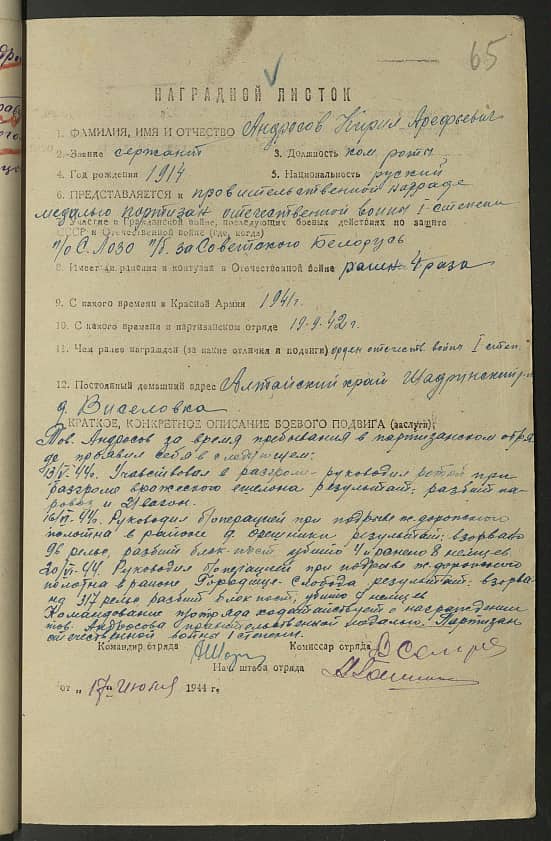 65
НАГРАДНОЙ ЛИСТОК
1. ФАМИЛИЯ, ИМЯ И ОТЧЕСТВО Андросов Кирил Арефьевич
2. Звание сержант 3. Должность ком. роты
4. Год рождения 1914 5. Национальность руский
6. ПРЕДСТАВЛЯЕТСЯ к правительственной награде
медалью партизан отечественной войны I степени
7. Участие в Гражданской войне, последующих боевых действиях по защите
СССР и Отечественной войне (где, когда)
п/о С. Лозо п/б. за Советскую Белорусь
8. Имеет ли ранения и контузии в Отечественной войне ранен 4 раза
9. С какого времени в Красной Армии 1941г.
10. С какого времени в партизанском отряде 19-9-42г.
11. Чем ранее награжден (за какие отличия и подвиги) орден отечеств войны I степ.
12. Постоянный домашний адрес Алтайский край Шадринский р-н
д. Виселовка
КРАТКОЕ, КОНКРЕТНОЕ ОПИСАНИЕ БОЕВОГО ПОДВИГА (заслуги):
Тов. Андросов за время пребывания в партизанском отря
де проявил себя в следующем:
13/VI-44г. Учавствовал в разгроме руководил ротой при
разгроме вражеского ешелона результат: разбит па-
ровоз и 21 вагон.
16/VI-44г. Руководил операцией при подрыве ж. дорожного
полотна в районе д. Орешники результат: взорвано
96 рельс, разбит блок-пост, убито 4 и ранено 8 немцев
20/VI-44 Руководил операцией при подрыве ж. дорожного
полотна в районе Городище-Слобода результат: взорва-
но 317 рельс разбит блок пост, убито 9 немцев
Командование п/отряда ходатайствует о награждении
тов. Андросова правительственной медалью: Партизан
отечественной войны 1 степени.
Командир отряда Комиссар отряда
Нач. штаба отряда
от „17" июня 1944 г.